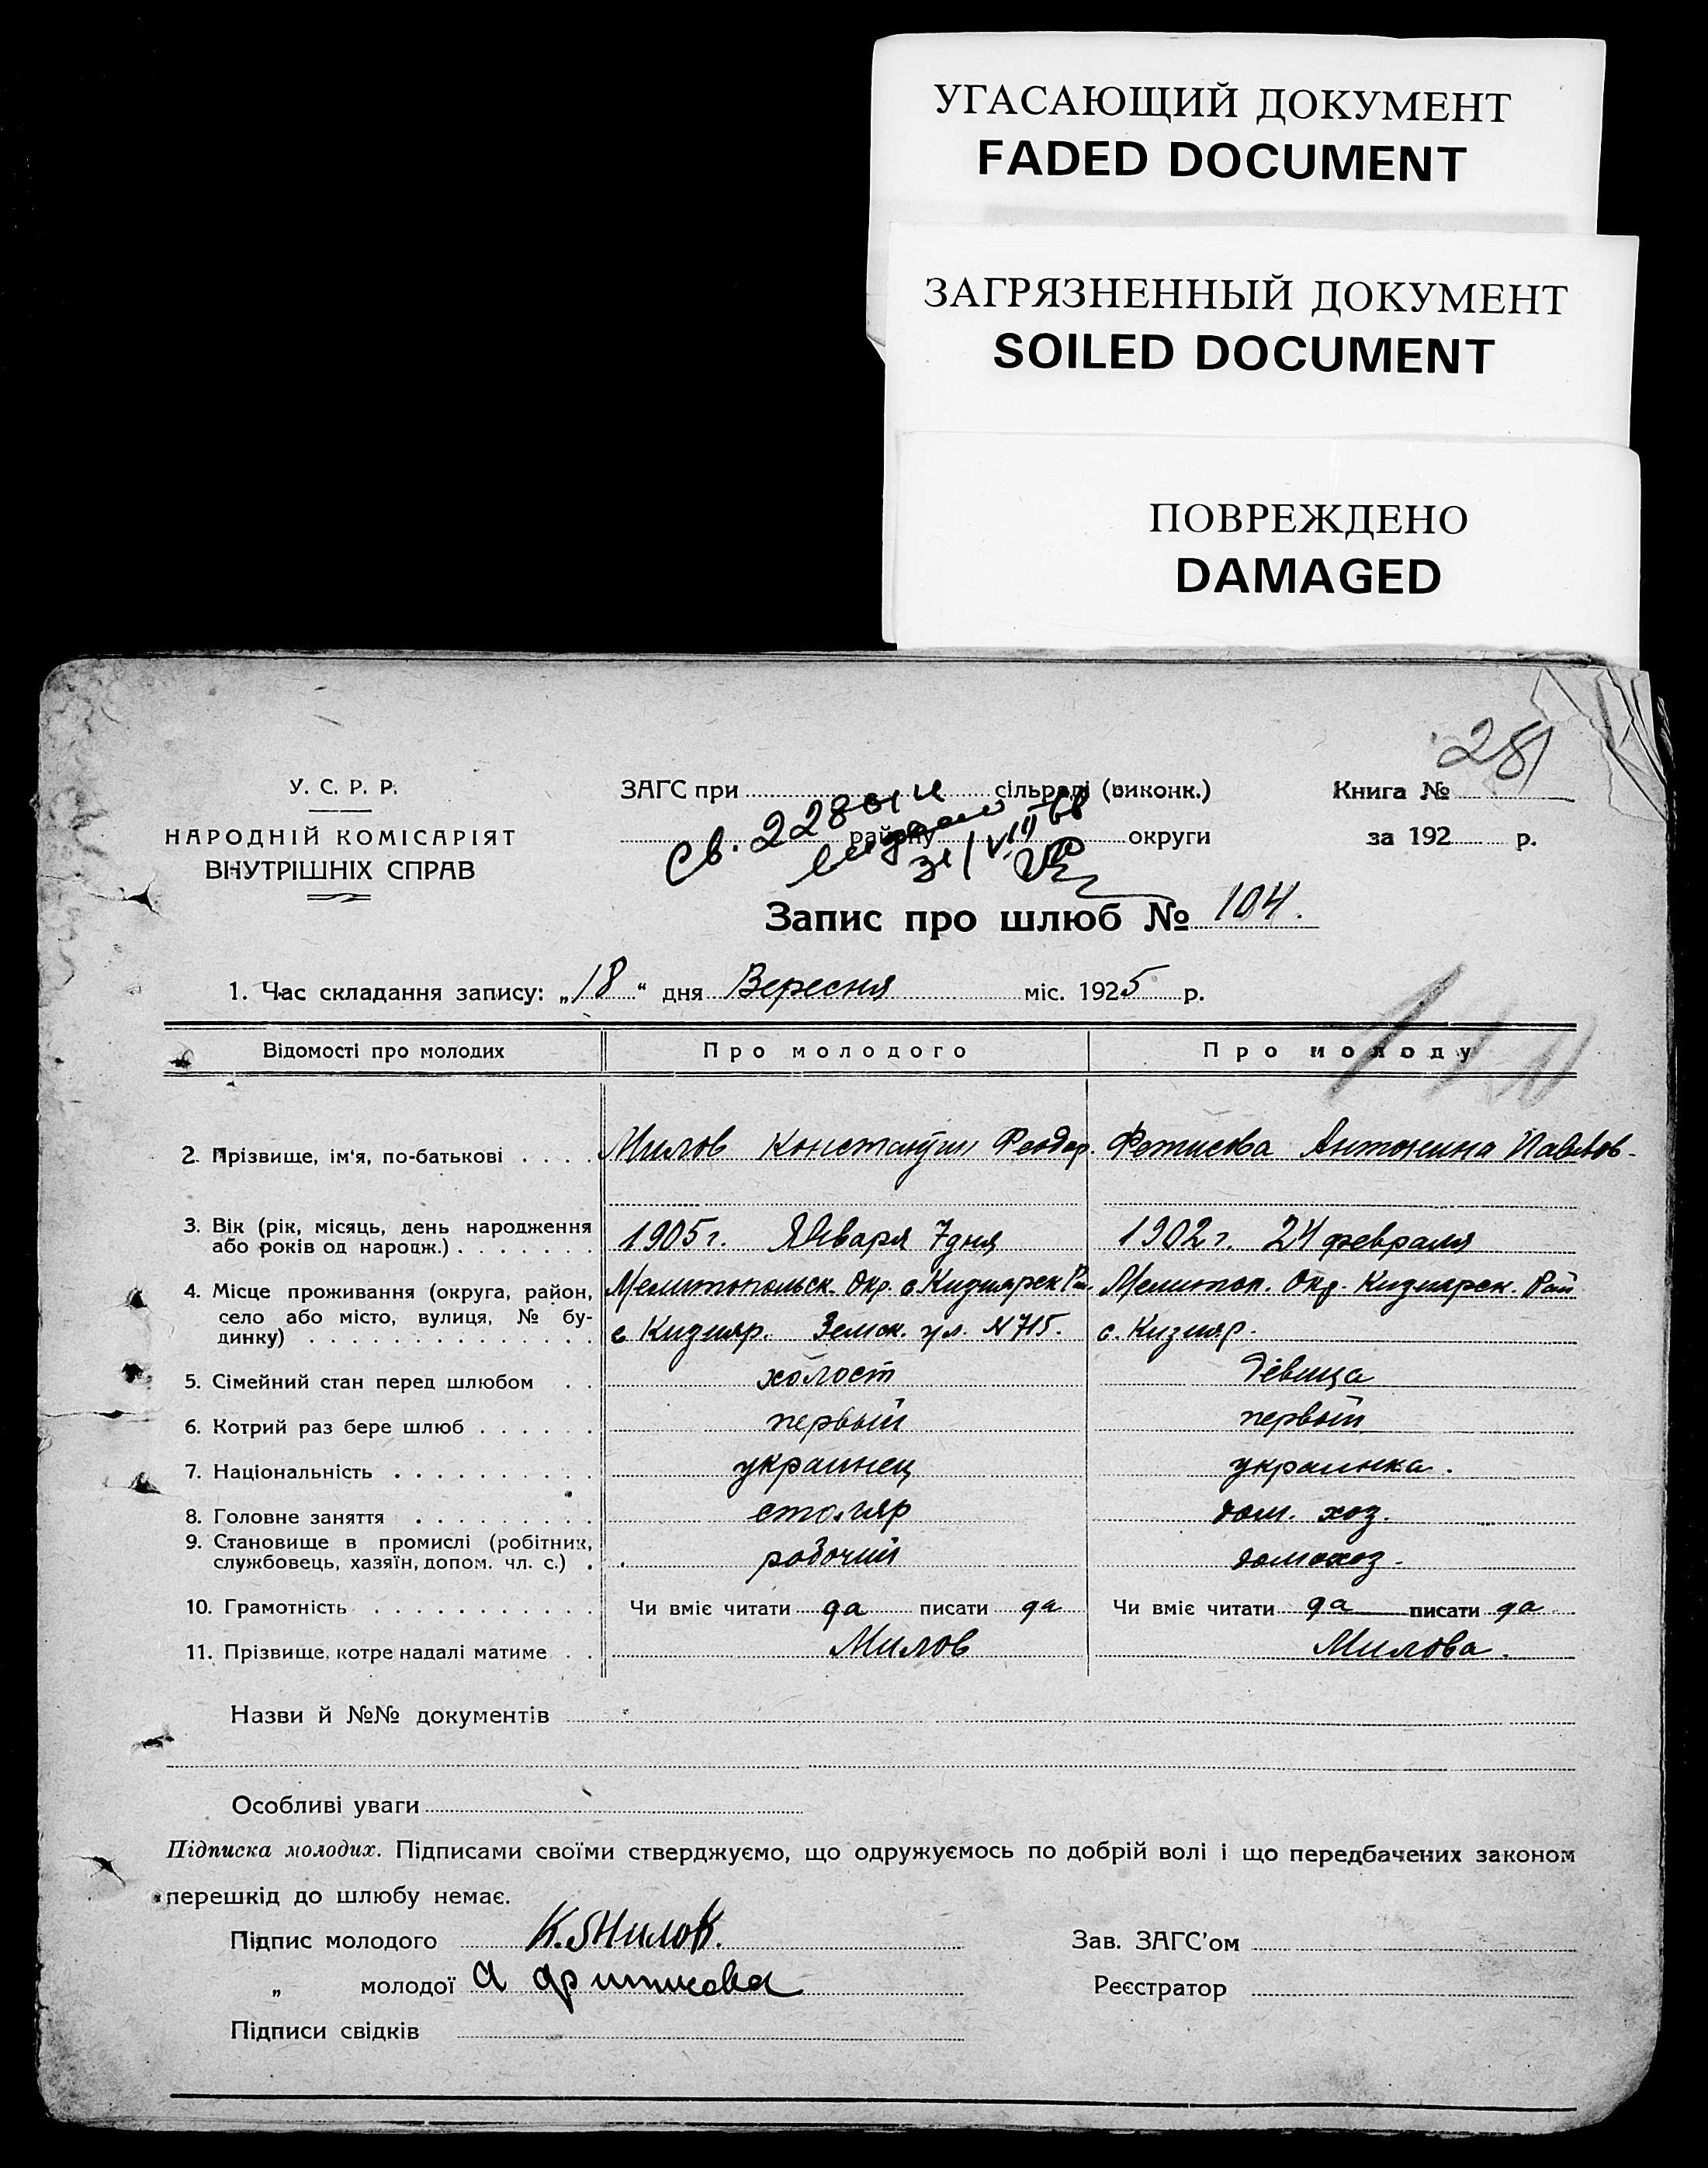 УГАСАЮЩИЙ ДОКУМЕНТ
FADED DOCUMENT
ЗАГРЯЗНЕННЫЙ ДОКУМЕНТ
SOILED DOCUMENT
ПОВРЕЖДЕНО
DAMAGED
281
У. С. Р. Р.
НАРОДНІЙ КОМІСАРІЯТ
ВНУТРІШНІХ СПРАВ
ЗАГС при сільраді (виконк.)
району округи
Св. 228
выдано
31/VIII
Книга №
за 192 р.
Запис про шлюб № 104.
1. Час складання запису: „18“ дня Вересня міс. 1925 р.
Відомості про молодих Про молодого Про молоду
2. Прізвище, ім'я, по-батькові . . . . Милов Константин Феодор. Фетисова Антонина Павлов-
3. Вік (рік, місяць, день народження
або років од народж.) . . . . . . . 1905 г. Января 7 дня 1902 г. 24 февраля
4. Місце проживання (округа, район, Мелитопольск. Окр. с Кизиярск Ра. Мелитоп. Окр. Кизиярск. Рай
село або місто, вулиця, № бу-
динку) . . . . . . . . . . . . . с Кизияр. Земск. ул. N 715. с. Кизияр.
5. Сімейний стан перед шлюбом . . холост девица
6. Котрий раз бере шлюб . . . . . . первый первый
7. Національність . . . . . . . . . . украинец украинка.
8. Головне заняття . . . . . . . . . столяр дом. хоз.
9. Становище в промислі (робітник,
службовець, хазяїн, допом. чл. с.) . рабочий домохоз.
10. Грамотність . . . . . . . . . . . Чи вміє читати да писати да Чи вміє читати да писати да
11. Прізвище, котре надалі матиме . . Милов Милова.
Назви й №№ документів
Особливі уваги
Підписка молодих. Підписами своїми стверджуємо, що одружуємось по добрій волі і що передбачених законом
перешкід до шлюбу немає.
Підпис молодого К. Милов. Зав. ЗАГС'ом
„ молодої А Реєстратор
Підписи свідків